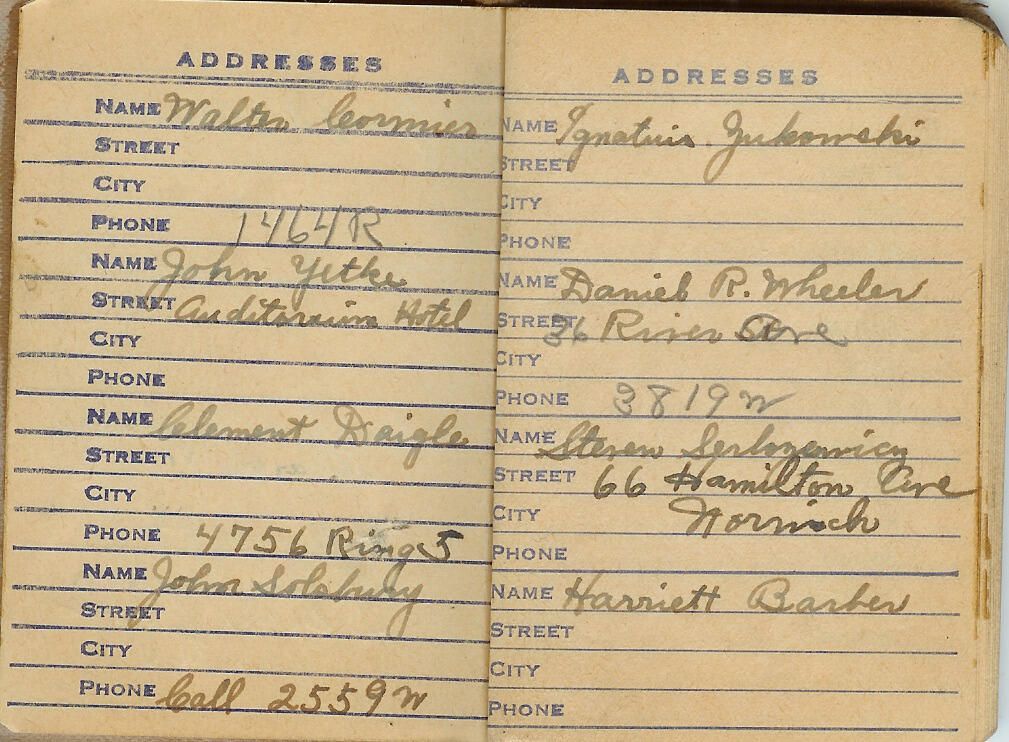 ADDRESSES
NAME Walter Cormier
STREET
CITY
PHONE 1464R
NAME John Yetke
STREET Auditorium Hotel
CITY
PHONE
NAME Clement Daigle
STREET
CITY
PHONE 4756 Ring 5
NAME John Solsbury
STREET
CITY
PHONE Call 2559W
ADDRESSES
NAME Ignatius Zukowski
STREET
CITY
PHONE
NAME Daniel R. Wheeler
STREET 36 River Ave
CITY
PHONE 3819W
NAME Steven
STREET 66 Hamilton Ave
CITY Norwich
PHONE
NAME Harriett Barber
STREET
CITY
PHONE